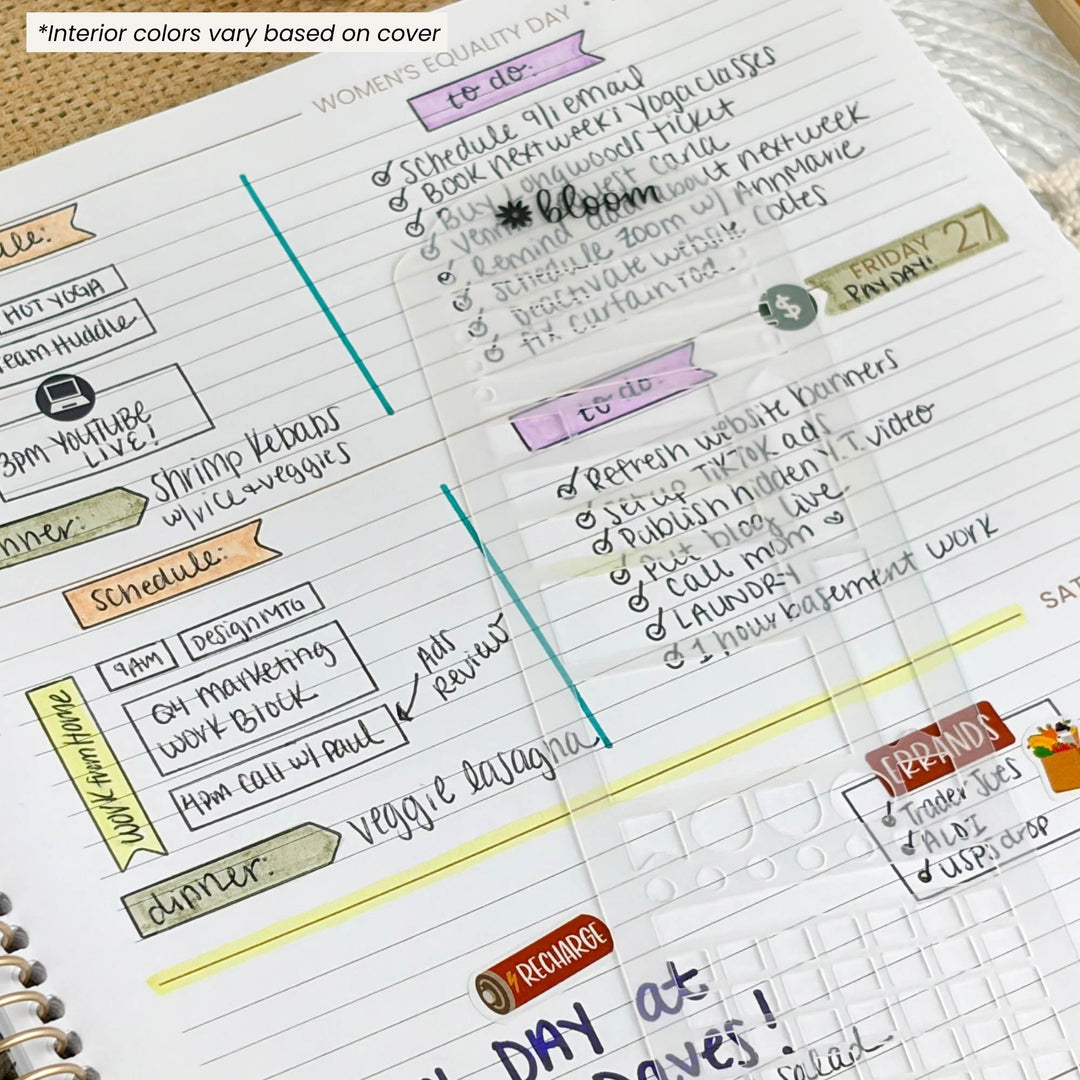 *Interior colors vary based on cover
WOMEN'S EQUALITY DAY
to do:
Schedule 9/1 email
Book next week's Yoga classes
Buy Longwoods ticket
bloom
about next week
Schedule zoom w/ AnnMarie
Deactivate website codes
fix curtain rod
HOT YOGA
Team Huddle
3PM YOUTUBE
LIVE!
Shrimp Kebabs
w/rice + veggies
FRIDAY 27
PAYDAY!
$
to do:
Refresh website banners
Set up TIKTOK ads
Publish hidden Y.T. video
Put blog live
Call mom
LAUNDRY
1 hour basement work
schedule:
9AM
Design MTG
Q4 Marketing
work Block
4pm call w/ Paul
Ads
Review
work from Home
dinner:
veggie lasagna
SAT
ERRANDS
Trader Joes
ALDI
USPS drop
RECHARGE
DAY at
salad